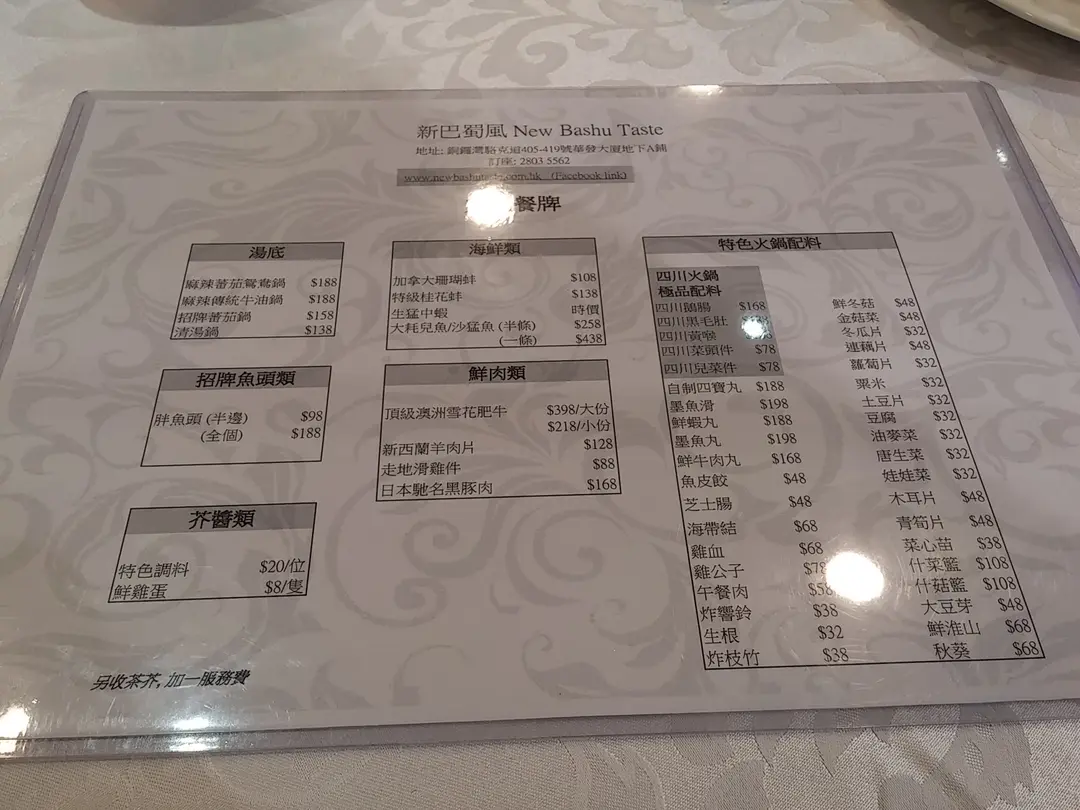 新巴蜀風 New Bashu Taste
地址: 銅鑼灣駱克道405-419號華發大廈地下A鋪
訂座: 2803 5562
www.newbashutaste.com.hk (Facebook link)
餐牌
湯底
麻辣蕃茄鴛鴦鍋 $188
麻辣傳統牛油鍋 $188
招牌蕃茄鍋 $158
清湯鍋 $138
招牌魚頭類
胖魚頭 (半邊) $98
(全個) $188
芥醬類
特色調料 $20/位
鮮雞蛋 $8/隻
海鮮類
加拿大珊瑚蚌 $108
特級桂花蚌 $138
生猛中蝦 時價
大耗兒魚/沙猛魚 (半條) $258
(一條) $438
鮮肉類
頂級澳洲雪花肥牛 $398/大份
$218/小份
新西蘭羊肉片 $128
走地滑雞件 $88
日本馳名黑豚肉 $168
特色火鍋配料
四川火鍋
極品配料
四川鵝腸 $168
四川黑毛肚
四川黃喉
四川菜頭件 $78
四川兒菜件 $78
自制四寶丸 $188
墨魚滑 $198
鮮蝦丸 $188
墨魚丸 $198
鮮牛肉丸 $168
魚皮餃 $48
芝士腸 $48
海帶結 $68
雞血 $68
雞公子 $78
午餐肉 $58
炸響鈴 $38
生根 $32
炸枝竹 $38
鮮冬菇 $48
金菇菜 $48
冬瓜片 $32
連藕片 $48
蘿蔔片 $32
粟米 $32
土豆片 $32
豆腐 $32
油麥菜 $32
唐生菜 $32
娃娃菜 $32
木耳片 $48
青筍片 $48
菜心苗 $38
什菜籃 $108
什菇籃 $108
大豆芽 $48
鮮淮山 $68
秋葵 $68
另收茶芥, 加一服務費